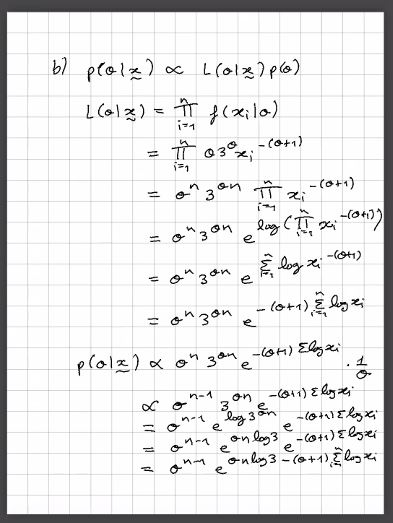 b) p(θ|x̰) ∝ L(θ|x̰) p(θ)
L(θ|x̰) = ∏_{i=1}^{n} f(x_i|θ)
= ∏_{i=1}^{n} θ3^θ x_i^{-(θ+1)}
= θ^n 3^{θn} ∏_{i=1}^{n} x_i^{-(θ+1)}
= θ^n 3^{θn} e^{log(∏_{i=1}^{n} x_i^{-(θ+1)})}
= θ^n 3^{θn} e^{∑_{i=1}^{n} log x_i^{-(θ+1)}}
= θ^n 3^{θn} e^{-(θ+1) ∑_{i=1}^{n} log x_i}
p(θ|x̰) ∝ θ^n 3^{θn} e^{-(θ+1) ∑ log x_i} · 1/θ
∝ θ^{n-1} 3^{θn} e^{-(θ+1) ∑ log x_i}
= θ^{n-1} e^{log 3^{θn}} e^{-(θ+1) ∑ log x_i}
= θ^{n-1} e^{θn log 3} e^{-(θ+1) ∑ log x_i}
= θ^{n-1} e^{θn log 3 -(θ+1) ∑_{i=1}^{n} log x_i}